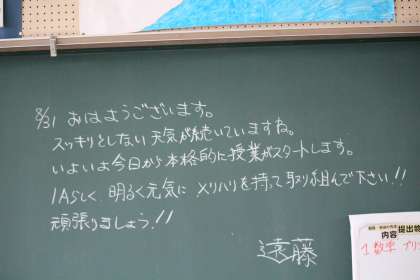 8/31 おはようございます。
スッキリとしない天気が続いていますね。
いよいよ今日から本格的に授業がスタートします。
1Aらしく 明るく元気に メリハリを持って取り組んで下さい!!
頑張りましょう!!
遠藤
内容 提出物
1 数学